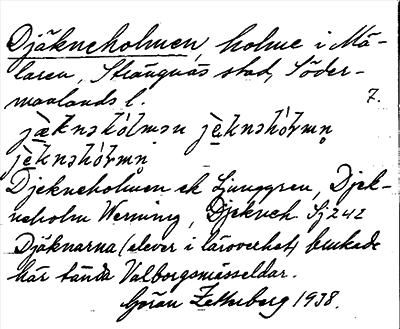 Djäkneholmen, holme i Mä-
laren, Strängnäs stad, Söder-
manlands l. 7.
jæknəhólmən jèknəhólmn̥
jèknəhólmn̥
Djekneholmen ek Ljunggren, Djek-
neholm Werming, Djekneh. Sj 242
Djäknarna (elever i läroverket) brukade
här tända Valborgsmässeldar.
Göran Zetterberg 1938.